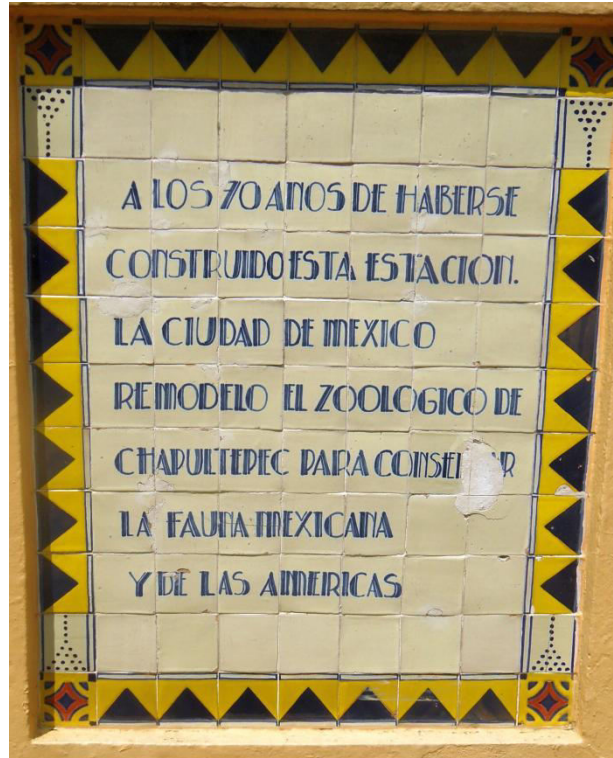 A LOS 70 ANOS DE HABERSE
CONSTRUIDO ESTA ESTACION.
LA CIUDAD DE MEXICO
REMODELO EL ZOOLOGICO DE
CHAPULTEPEC PARA
LA FAUNA MEXICANA
Y DE LAS AMERICAS